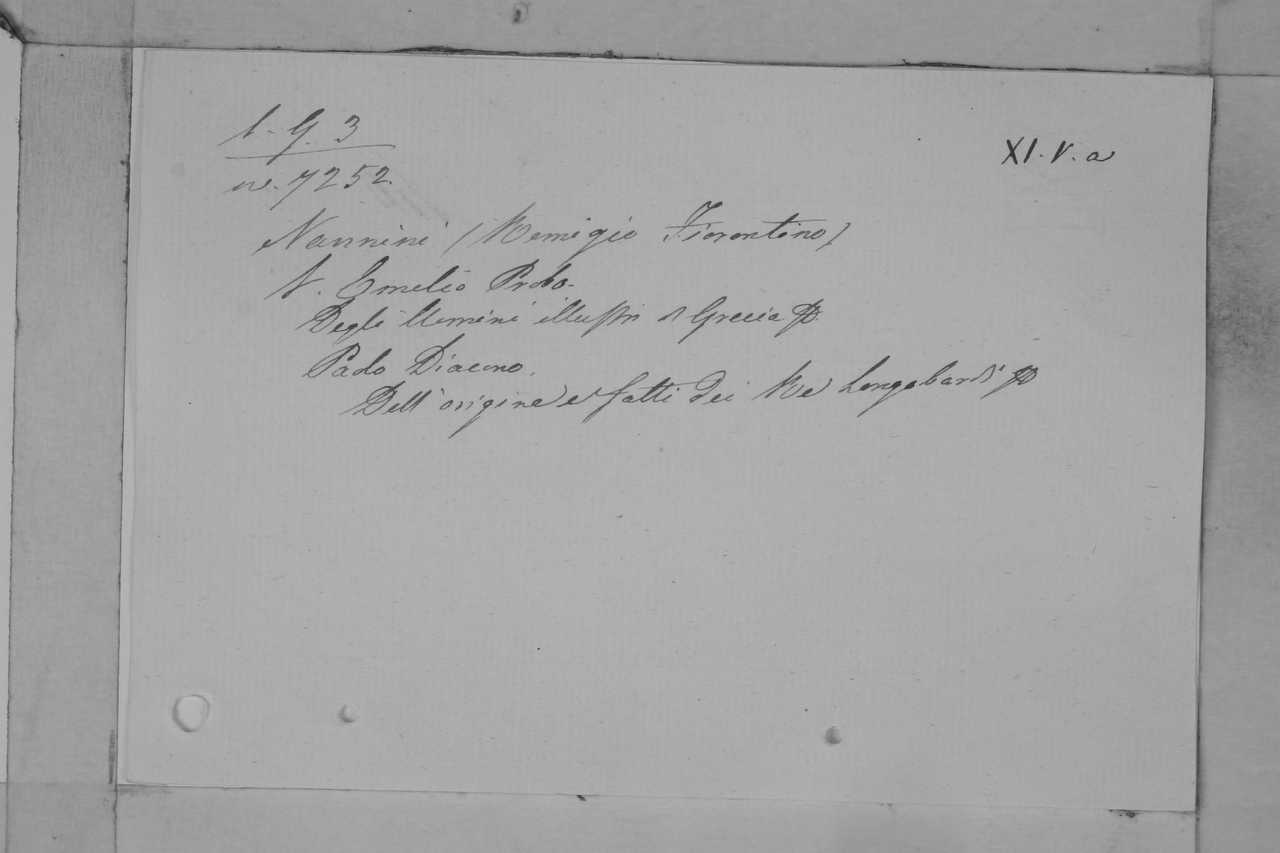 1. G. 3
nr. 7252.
XI. V. a
Nannini (Remigio Fiorentino)
V. Emelio Probo.
Degli Uomini illustri di Grecia
Paolo Diacono.
Dell'origine e fatti dei Re Longobardi